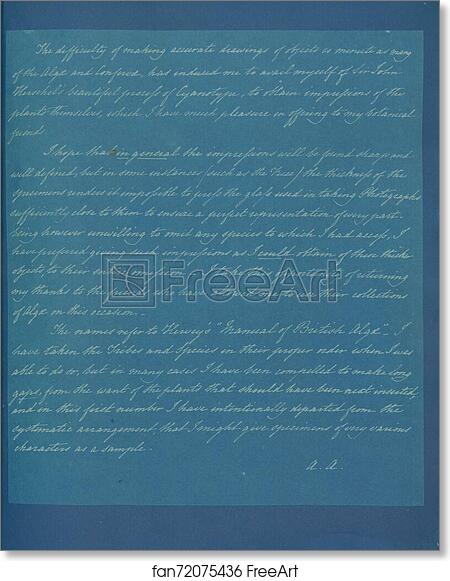 The difficulty of making accurate drawings of objects so minute as many
of the Algæ and Confervæ, has induced me to avail myself of Sir John
Herschel's beautiful process of Cyanotype, to obtain impressions of the
plants themselves, which I have much pleasure in offering to my botanical
friends.
I hope that in general the impressions will be found sharp and
well defined, but in some instances (such as the Fuci) the thickness of the
specimens renders it impossible to press the glass used in taking Photographs
sufficiently close to them to ensure a perfect representation of every part.
Being however unwilling to omit any species to which I had access, I
have preferred giving such impressions as I could obtain of these thicker
objects to their entire omission. I take this opportunity of returning
my thanks to the friends who have allowed me to use their collections
of Algæ on this occasion._
The names refer to Harvey's "Manual of British Algæ"_ I
have taken the Tribes and Species in their proper order when I was
able to do so, but in many cases I have been compelled to make long
gaps, from the want of the plants that should have been next inserted,
and in this first number I have intentionally departed from the
systematic arrangement, that I might give specimens of very various
characters as a sample.
A. A.
FreeArt
fan72075436 FreeArt